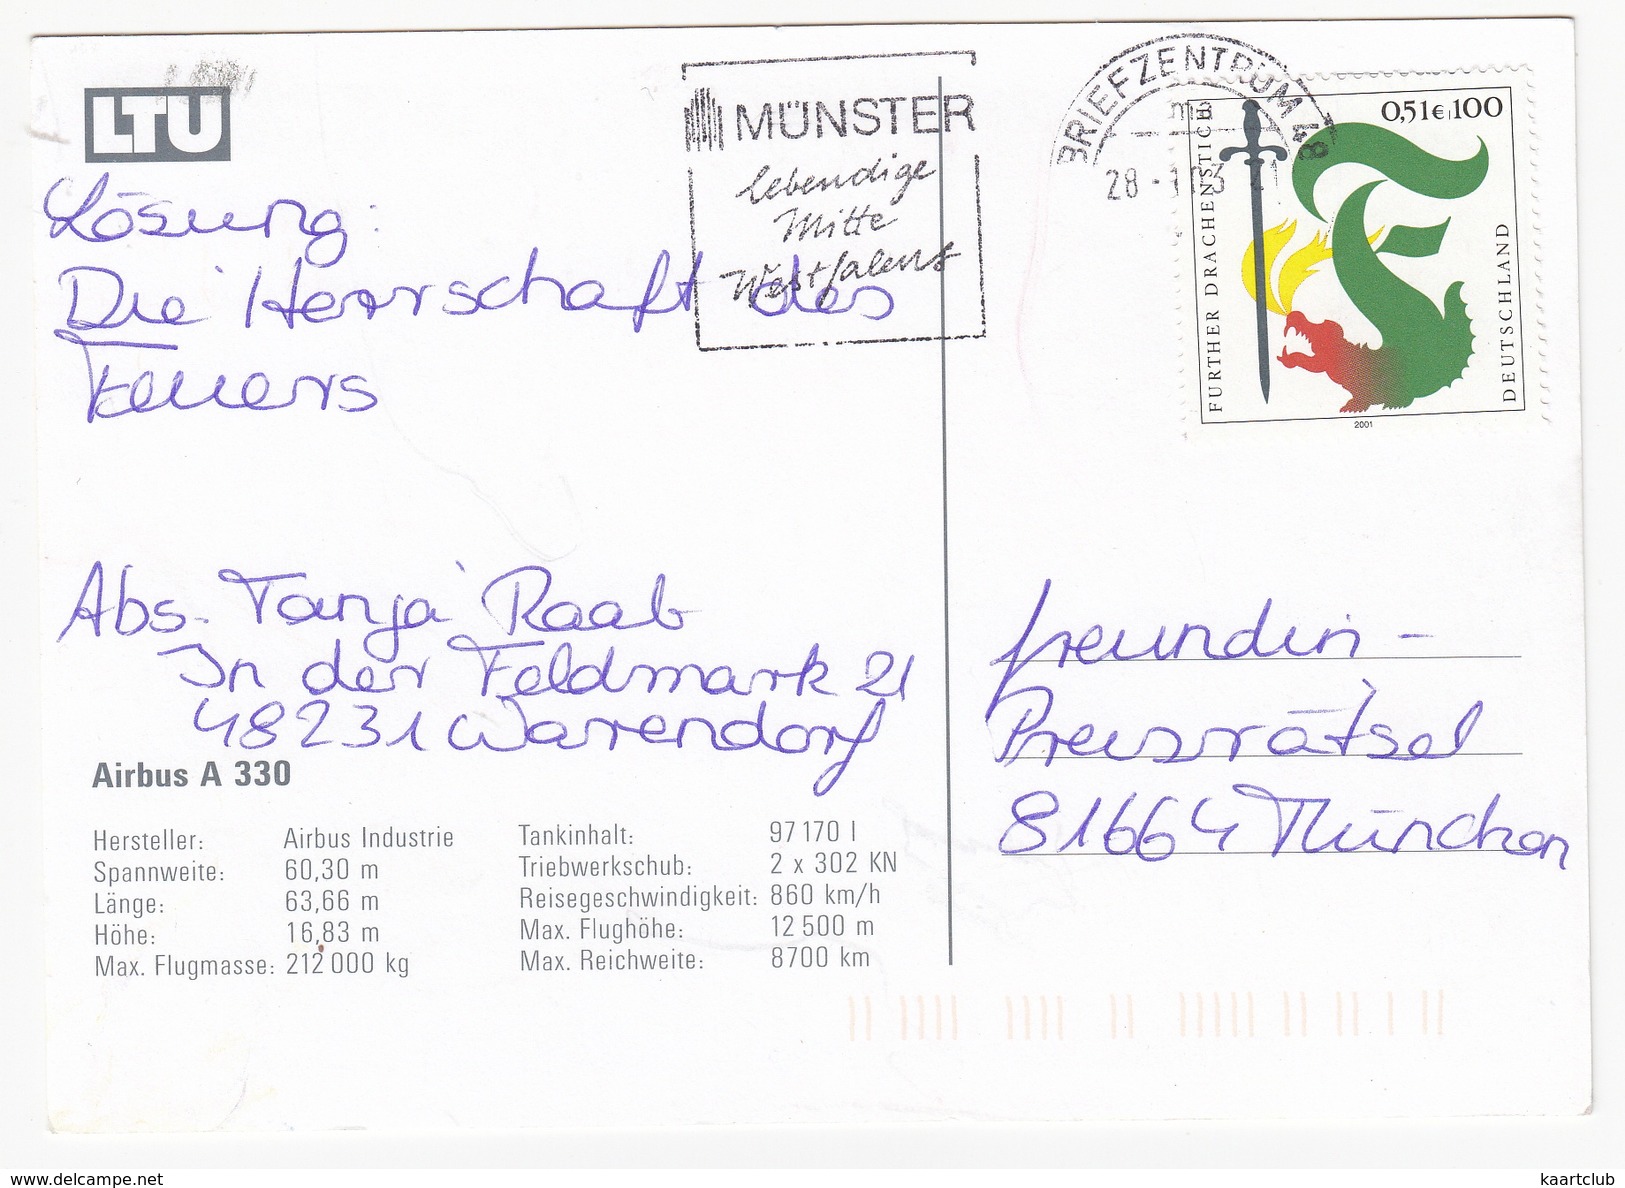 LTU
MÜNSTER
lebendige
Mitte
Westfalens
BRIEFZENTRUM 48
0,51€ 100
FURTHER DRACHENSTICH
DEUTSCHLAND
2001
Lösung:
Die Herrschaft des
Feuers
Abs. Tanja Raab
In der Feldmark 21
48231 Warendorf
freundin-
Preisrätsel
81664 München
Airbus A 330
Hersteller: Airbus Industrie
Spannweite: 60,30 m
Länge: 63,66 m
Höhe: 16,83 m
Max. Flugmasse: 212 000 kg
Tankinhalt: 97 170 l
Triebwerkschub: 2 x 302 KN
Reisegeschwindigkeit: 860 km/h
Max. Flughöhe: 12 500 m
Max. Reichweite: 8700 km
www.delcampe.net
kaartclub